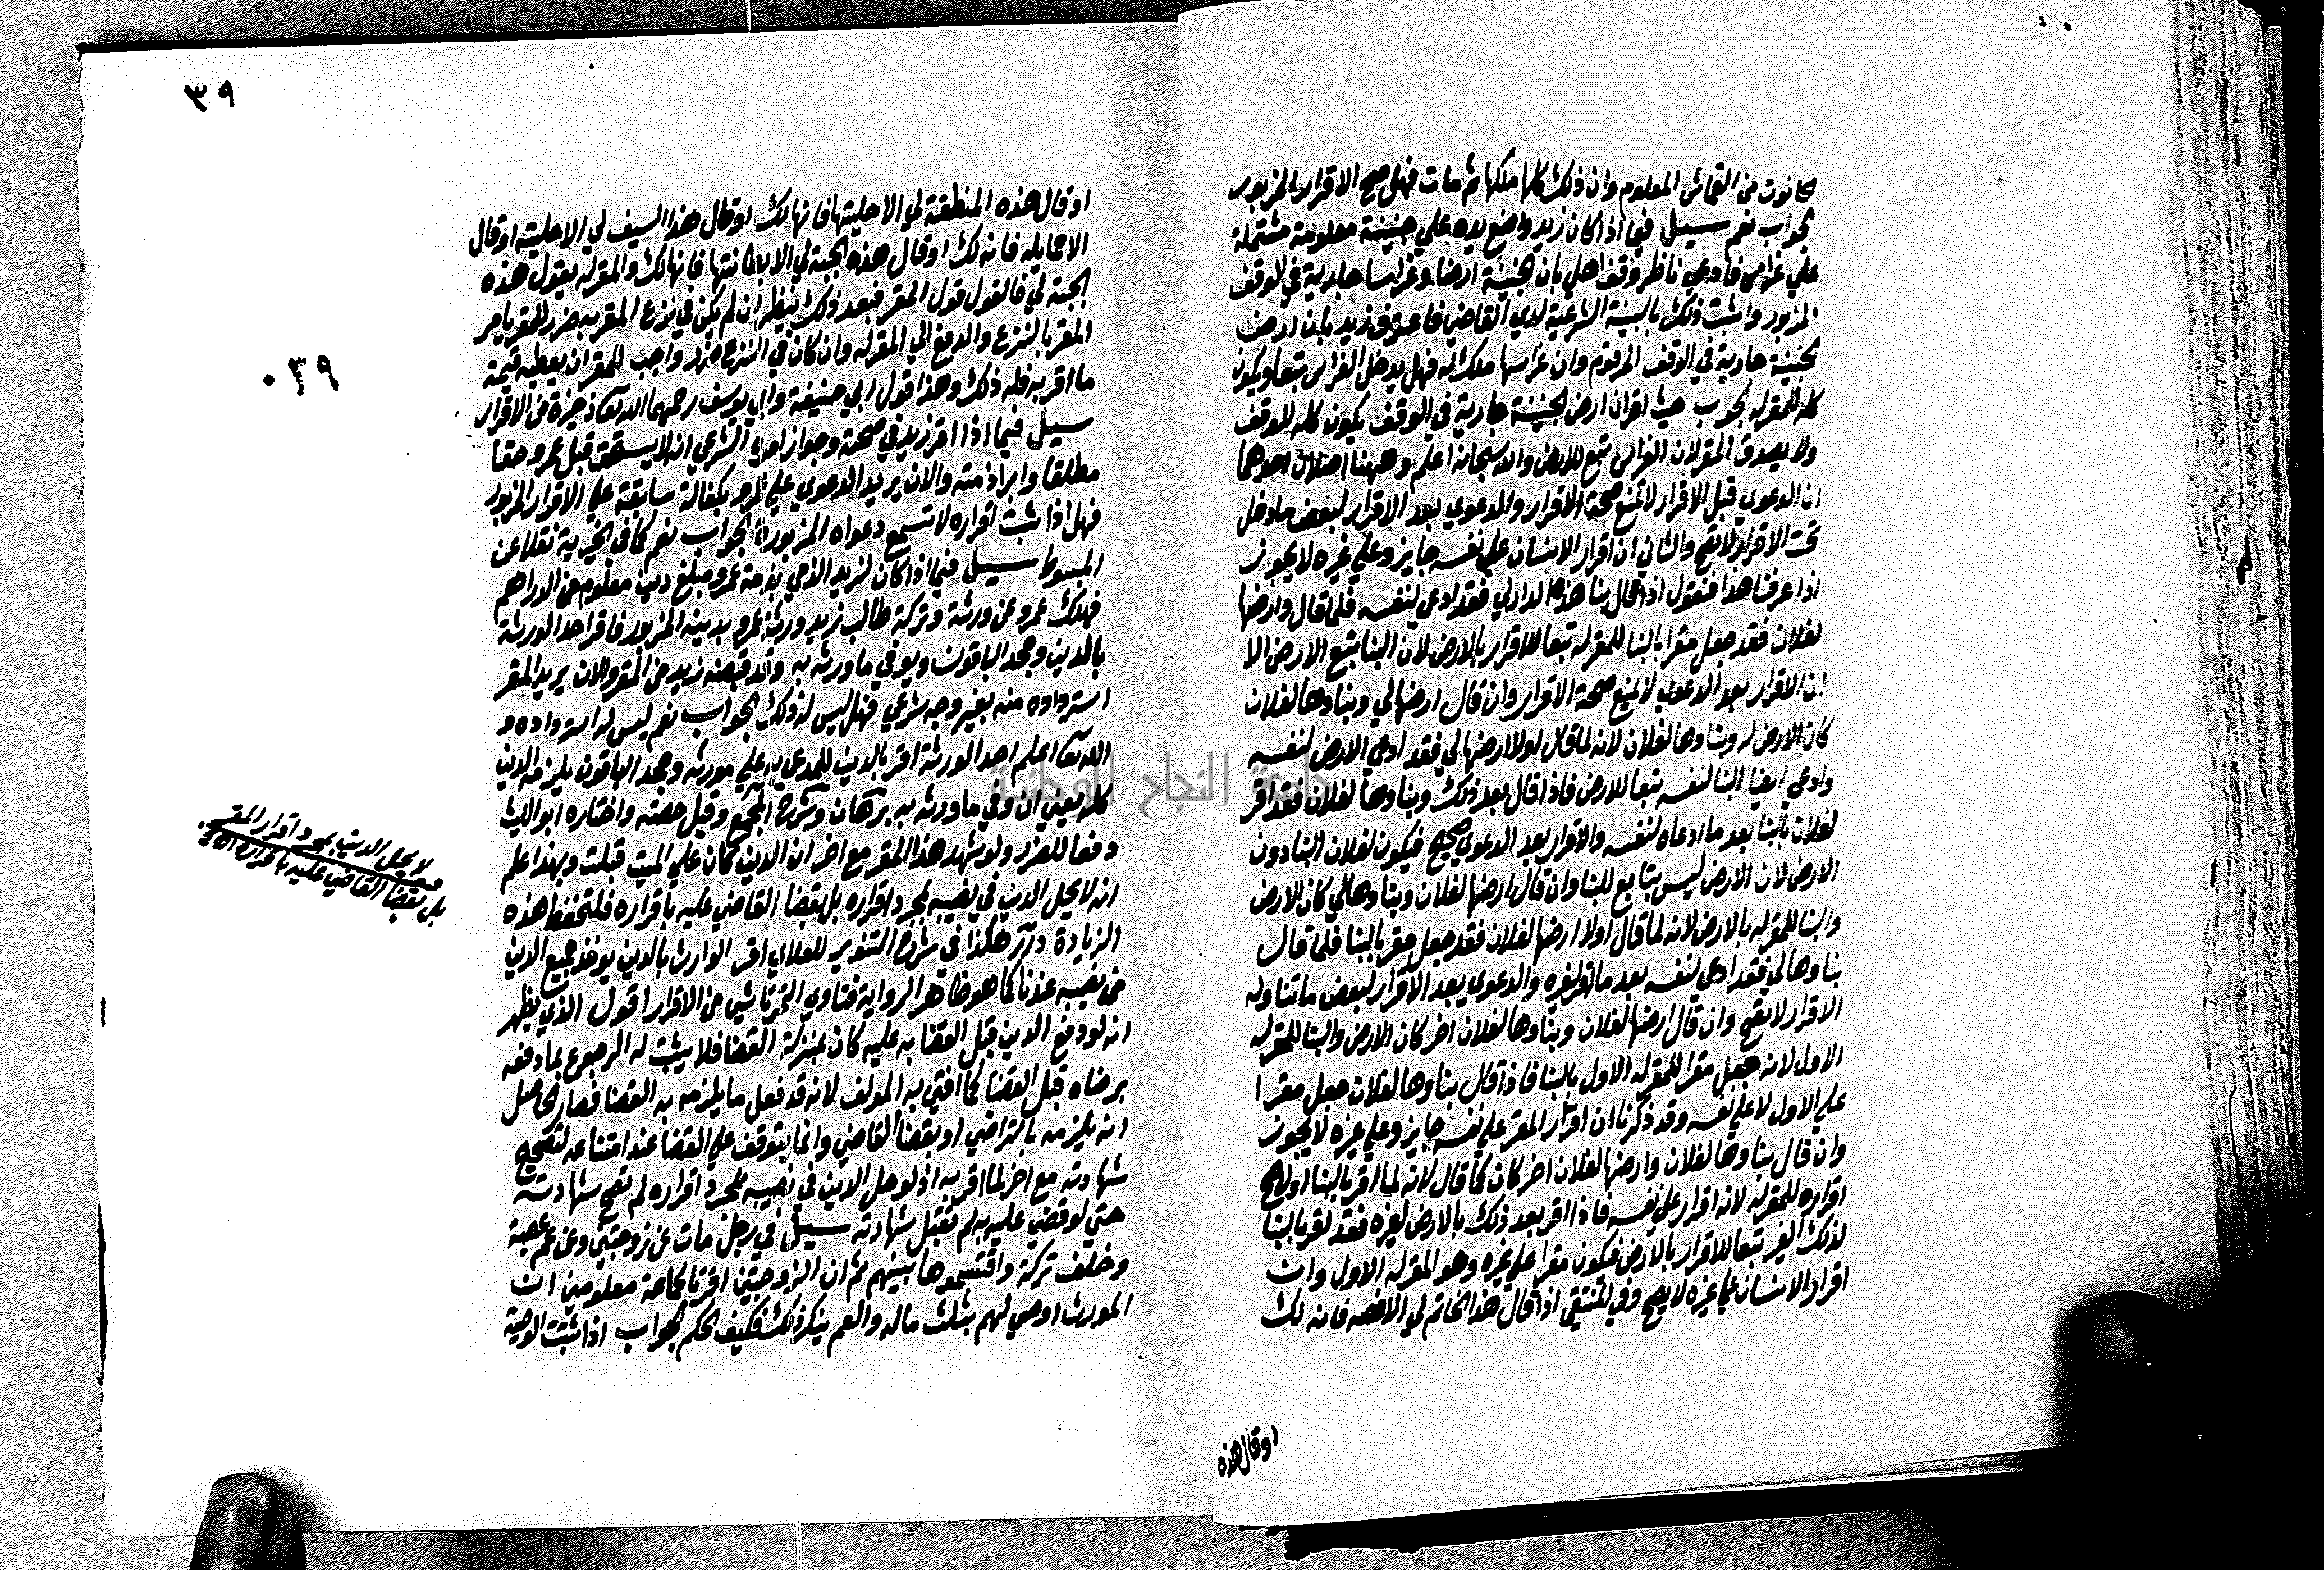 كانوت من القماش المعلوم وان ذلك كلها ملكها ثم مات فهل صح الاقرار المزبور
لجواب نعم سيل فيما اذا كان زيد واضع يده علي جنينة معلومة مشتملة
علي غراس فادعي ناظر وقف اهلي بان الجنينة ارضا وغراسا جارية في الوقف
المزبور واثبت ذلك بالبينة الشرعية لدي القاضي فاعترف زيد بان ارض
لجنينة جارية في الوقف المرقوم وان غراسها ملك له فهل يدخل الغراس تبعا ويكون
كله للمقر له لجواب حيث اقر ان ارض الجنينة جارية في الوقف يكون كله للوقف
ولا يصدق المقر لان الغراس تبع للارض والله سبحانه اعلم وههنا اصلان احدهما
ان الدعوي قبل الاقرار لا تمنع صحة الاقرار والدعوي بعد الاقرار لبعض ما دخل
تحت الاقرار لا تصح والثاني ان اقرار الانسان علي نفسه جايز وعلي غيره لا يجوز
اذا عرفنا هذا فنقول اذا قال بنا هذه الدار لي فقد ادعي لنفسه فلما قال وارضها
لفلان فقد جعل مقرا بالبنا للمقر له تبعا للاقرار بالارض لان البنا تبع الارض الا
ان الاقرار بعد الدعوي لا يمنع صحة الاقرار وان قال ارضها لي وبناوها لفلان
كان الارض له وبناوها لفلان لانه لما قال اولا ارضها لي فقد ادعي الارض لنفسه
وادعي ايضا البنا لنفسه تبعا للارض فاذا قال بعد ذلك وبناوها لفلان فقد اقر
لفلان بالبنا بعد ما ادعاه لنفسه والاقرار بعد الدعوي صحيح فيكون لفلان البنا دون
الارض لان الارض ليس بتابع للبنا وان قال ارضها لفلان وبناوها لي كان الارض
والبنا للمقر له بالارض لانه لما قال اولا ارضها لفلان فقد جعل مقرا بالبنا فلما قال
بناوها لي فقد ادعي لنفسه بعد ما اقر لغيره والدعوي بعد الاقرار لبعض ما تناوله
الاقرار لا تصح وان قال ارضها لفلان وبناوها لفلان اخر كان الارض والبنا للمقر له
الاول لانه جعل مقرا للمقر له الاول بالبنا فاذا قال بناوها لفلان جعل مقرا
علي الاول لا علي نفسه وقد ذكرنا ان اقرار المقر علي نفسه جايز وعلي غيره لا يجوز
وان قال بناوها لفلان وارضها لفلان اخر كان كما قال لانه لما اقر بالبنا اولا صح
اقراره للمقر له لانه اقرار علي نفسه فاذا اقر بعد ذلك بالارض لغيره فقد اقر بالبنا
لذلك الغير تبعا للاقرار بالارض فيكون مقرا علي غيره وهو المقر له الاول وان
اقرار الانسان علي غيره لا يصح وفي المنتقي اذا قال هذا الخاتم لي الا فصه فانه لك
او قال هذه
٣٩
٠٣٩
او قال هذه المنطقة لي الا حليتها فانها لك او قال هذا السيف لي الا حليته او قال
الا حمايله فانه لك او قال هذه الجبة لي الا بطانتها فانها لك والمقر له يقول هذه
الجبة لي فالقول قول المقر فبعد ذلك ينظر ان لم يكن في نزع المقر به ضرر للمقر يامر
المقر بالنزع والدفع الي المقر له وان كان في النزع ضرر واجب للمقر ان يعطيه قيمة
ما اقر به فله ذلك وهذا قول ابي حنيفة وابي يوسف رحمهما الله تعا ذخيرة من الاقرار
سيل فيما اذا اقر زيد في صحته وجواز امره الشرعي انه لا يستحق قبل عمرو حقا
مطلقا وابرا ذمته والان يريد الدعوي علي عمرو بكفالة سابقة علي الاقرار المزبور
فهل اذا ثبت اقراره لا تسمع دعواه المزبورة الجواب نعم كما في الخيرية نقلا عن
المبسوط سيل فيما اذا كان لزيد الذمي بذمة عمرو مبلغ دين معلوم من الدراهم
فهلك عمرو عن ورثة وتركة طالب زيد ورثة عمرو بدينه المزبور فاقر احد الورثة
بالدين وجحد الباقون ويوفي ما ورثه به وقد قبضه زيد من المقر والان يريد المقر
استرداده منه بغير وجه شرعي فهل ليس له ذلك الجواب نعم ليس له استرداده و
الله تعا اعلم احد الورثة اقر بالدين للمدعي به علي مورثه وجحد الباقون يلزمه الدين
كله يعني ان وفي ما ورثه به برهان وشرح المجمع وقيل حصته واختاره ابو الليث
دفعا للضرر ولو شهد هذا المقر مع اخر ان الدين كان علي الميت قبلت وبهذا علم
انه لا يحل الدين في نصيبه بمجرد اقراره بل بقضا القاضي عليه باقراره فلتحفظ هذه
الزيادة درر هكذا في شرح التنوير للعلاي اقر الوارث بالدين يوخذ جميع الدين
من نصيبه عندنا كما هو ظاهر الرواية فتاوي التمرتاشي من الاقرار اقول الذي يظهر
انه لو دفع الدين قبل القضا به عليه كان بمنزلة القضا فلا يثبت له الرجوع بما دفعه
برضاه قبل القضا كما افتي به المولف لانه قد فعل ما يلزمه به القضا فصار الحاصل
انه يلزمه بالتراضي او بقضا القاضي وانما يتوقف علي القضا عند امتناعه لتصحيح
شهادته مع اخر لما اقر به اذ لو حل الدين في نصيبه بمجرد اقراره لم تصح شهادته
حتي لو قضي عليه به لم تقبل شهادته سيل في رجل مات عن زوجتين وعن عم عصبة
وخلف تركة واقتسموها بينهم ثم ان الزوجتين اقرتا لجماعة معلومين ان
المورث اوصي لهم بثلث ماله والعم ينكر ذلك فكيف الحكم الجواب اذا ثبتت الوصية
لا يحل الدين بمجرد اقرار المقر
بل بقضا القاضي عليه باقراره
جامعة النجاح الوطنية